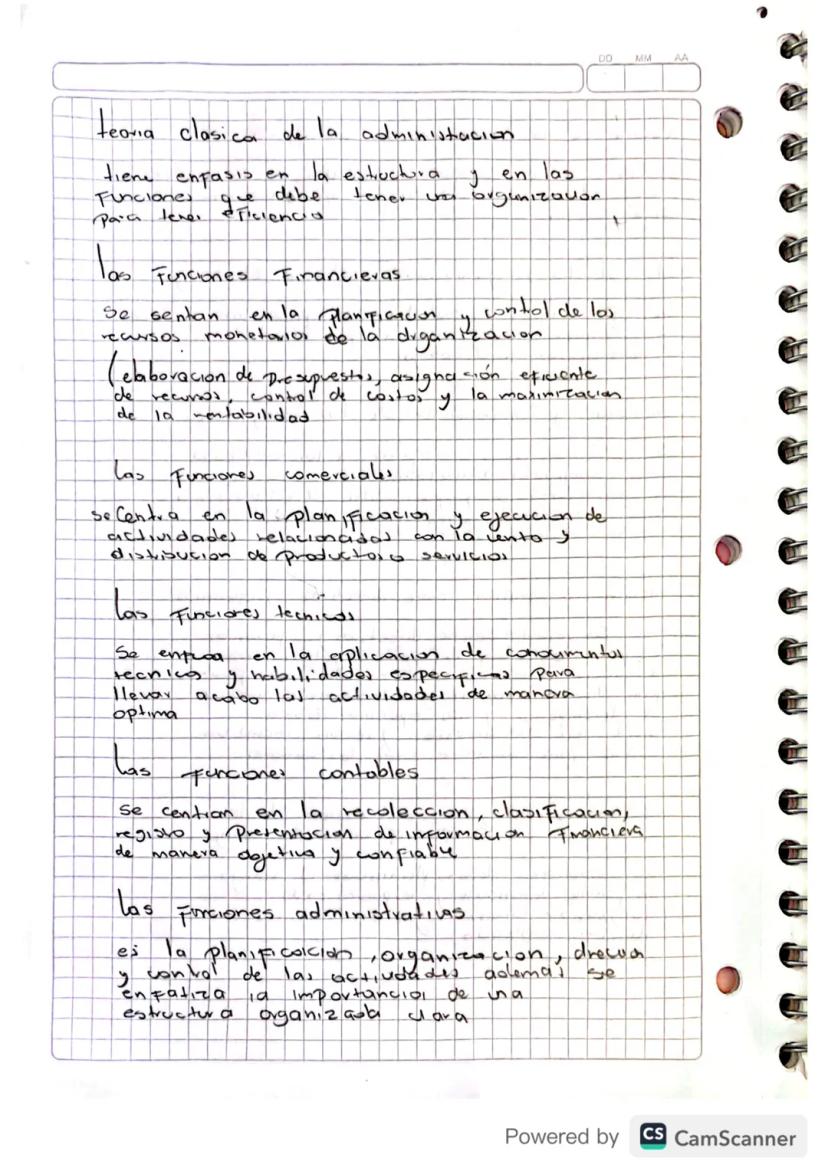 DD MM AA
teoria clasica de la administracion
tiene enfasis en la estructura y en las
Funciones que debe tener una organizacion
para tener eficiencia
las Funciones Financieras
Se sentan en la planificacion y control de los
recursos monetarios de la organizacion
(elaboracion de presupuestos, asignación eficiente
de recursos, control de costos y la maximizacion
de la rentabilidad
las Funciones comerciales
se Centra en la planificacion y ejecucion de
actividades relacionadas con la venta y
distribucion de productos o servicios
las Funciones tecnicas
Se enfoca en la aplicacion de conocimientos
tecnicos y habilidades especificas para
llevar acabo las actividades de manera
optima
las funciones contables
se centran en la recoleccion, clasificacion,
registro y Presentacion de informacion Financiera
de manera objetiva y confiable
las Funciones administrativas
es la planificacion, organizacion, direccion
y control de las actividades ademas se
enfatiza la importancia de una
estructura organizada clara
Powered by CS CamScanner